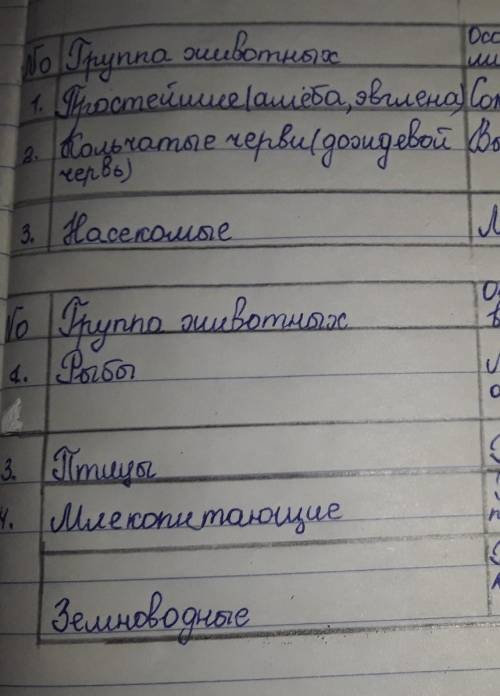 № Группа животных
1. Простейшие(амёба, эвглена)
2. Кольчатые черви(дождевой
червь)
3. Насекомые
№ Группа животных
1. Рыбы
3. Птицы
4. Млекопитающие
Земноводные